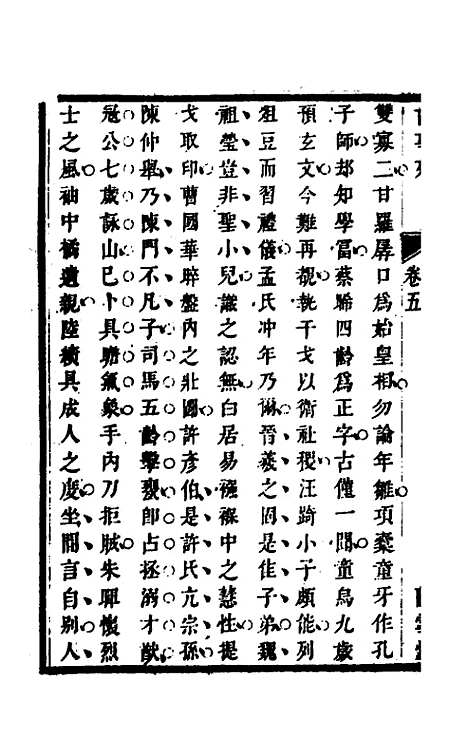 卷五
雙寡二甘羅孱口爲始皇相勿論年雛項橐童牙作孔
子師却知學富蔡晞四齡爲正字古僅一聞童烏九歲
預玄文今難再覯執干戈以衛社稷汪踦小子頗能列
俎豆而習禮儀孟氏冲年乃爾晉羲之固是佳子弟魏
祖瑩豈非聖小兒識之認無白居易襁褓中之慧性提
戈取印曹國華晬盤內之壯圖許彥伯是許氏亢宗孫
陳仲舉乃陳門不凡子司馬五齡擊甕卽占拯溺才猷
冦公七歲詠山已卜具瞻氣象手內刀拒賊朱暉懷烈
士之風袖中橘遺親陸績具成人之度坐間言自别人